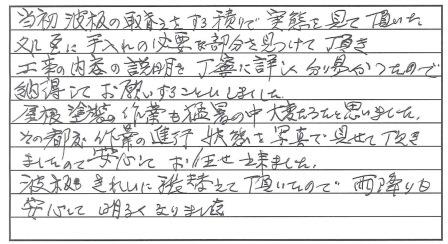 当初波板の取替えをする積りで実態を見て頂いた
処更に手入れの必要な部分を見つけて頂き
工事の内容の説明も丁寧に詳しく分り易かったので
納得してお願いすることにしました。
屋根塗装の作業も猛暑の中大変だったと思いました。
その都度作業の進行状態を写真で見せて頂き
ましたので安心してお任せ出来ました。
波板もきれいに張替えて頂いたので雨降りも
安心して明るくなりました